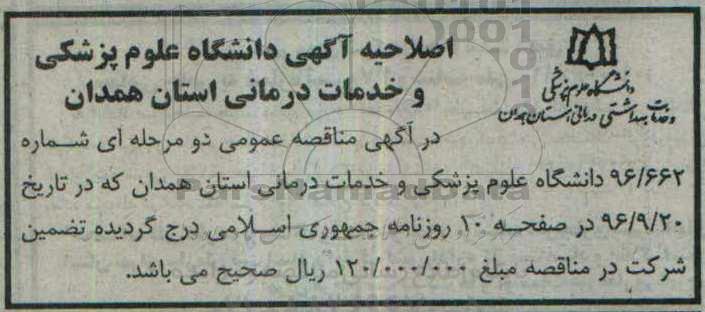 اصلاحیه آگهی دانشگاه علوم پزشکی
و خدمات درمانی استان همدان
دانشگاه علوم پزشکی
و خدمات بهداشتی درمانی استان همدان
در آگهی مناقصه عمومی دو مرحله ای شماره
۹۶/۶۶۲ دانشگاه علوم پزشکی و خدمات درمانی استان همدان که در تاریخ
۹۶/۹/۲۰ در صفحه ۱۰ روزنامه جمهوری اسلامی درج گردیده تضمین
شرکت در مناقصه مبلغ ۱۲۰/۰۰۰/۰۰۰ ریال صحیح می باشد.
ParsNamadData